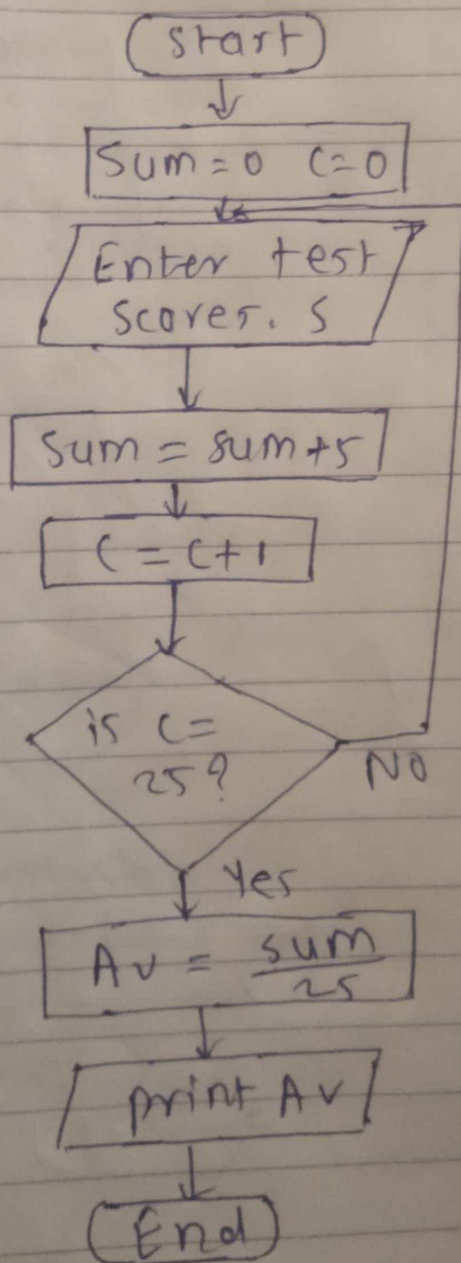 Start
Sum=0 C=0
Enter test
Scores. S
Sum = sum+s
C = C+1
is C=
25?
NO
Yes
Av = sum
25
print Av
End